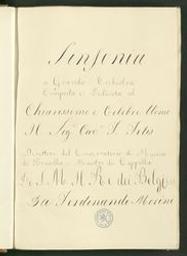 Sinfonia
a Grande Orchestra
Composta e Dedicata al
Chiarissimo e Celebre Uomo
Il Sig.r Cav.e F. Fetis
Direttore del Conservatorio di Musica
di Bruxelles e Maestro di Cappella
di S. M. il Re dei Belgi
Da Ferdinando Morini